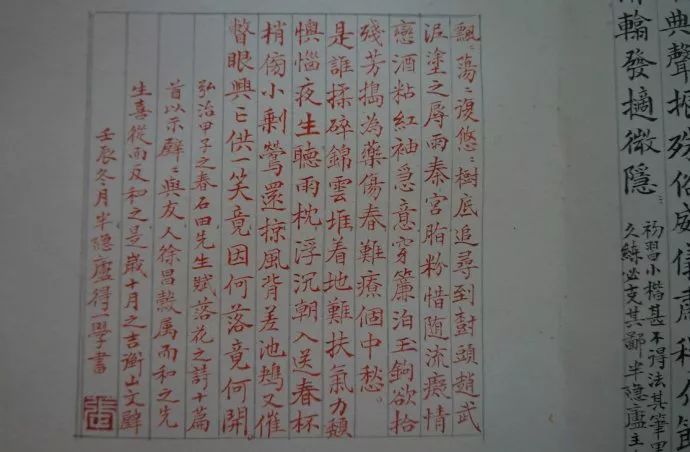 典聲振殊俗威信肅
發擿微隱
初習小楷甚不得法其筆
久練必支其鄙半隐廬主
飄〻蕩〻復悠〻樹底追尋到彀頭趙武
泥塗之辱雨秦宮脂粉惜随流癡情
戀酒粘紅袖急意穿簾泊玉鉤欲拾
殘芳搗為藥傷春難療個中愁
是誰揉碎錦雲堆着地難扶氣力頹
懊惱夜生聽雨枕浮沉朝入送春杯
梢傍小剩鶯還掠風背差池鷰又催
瞥眼興亡供一笑竟因何落竟何開
弘治甲子之春石田先生賦落花之詩十篇
首以示璧〻與友人徐昌穀屬而和之先
生喜從而反和之是歲十月之吉衡山文璧
壬辰冬月半隐廬得一學書